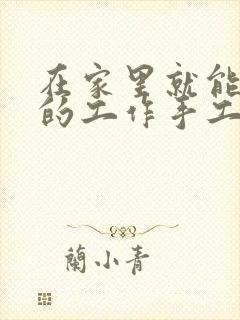 在家里就能
的工作手工
蘭小青